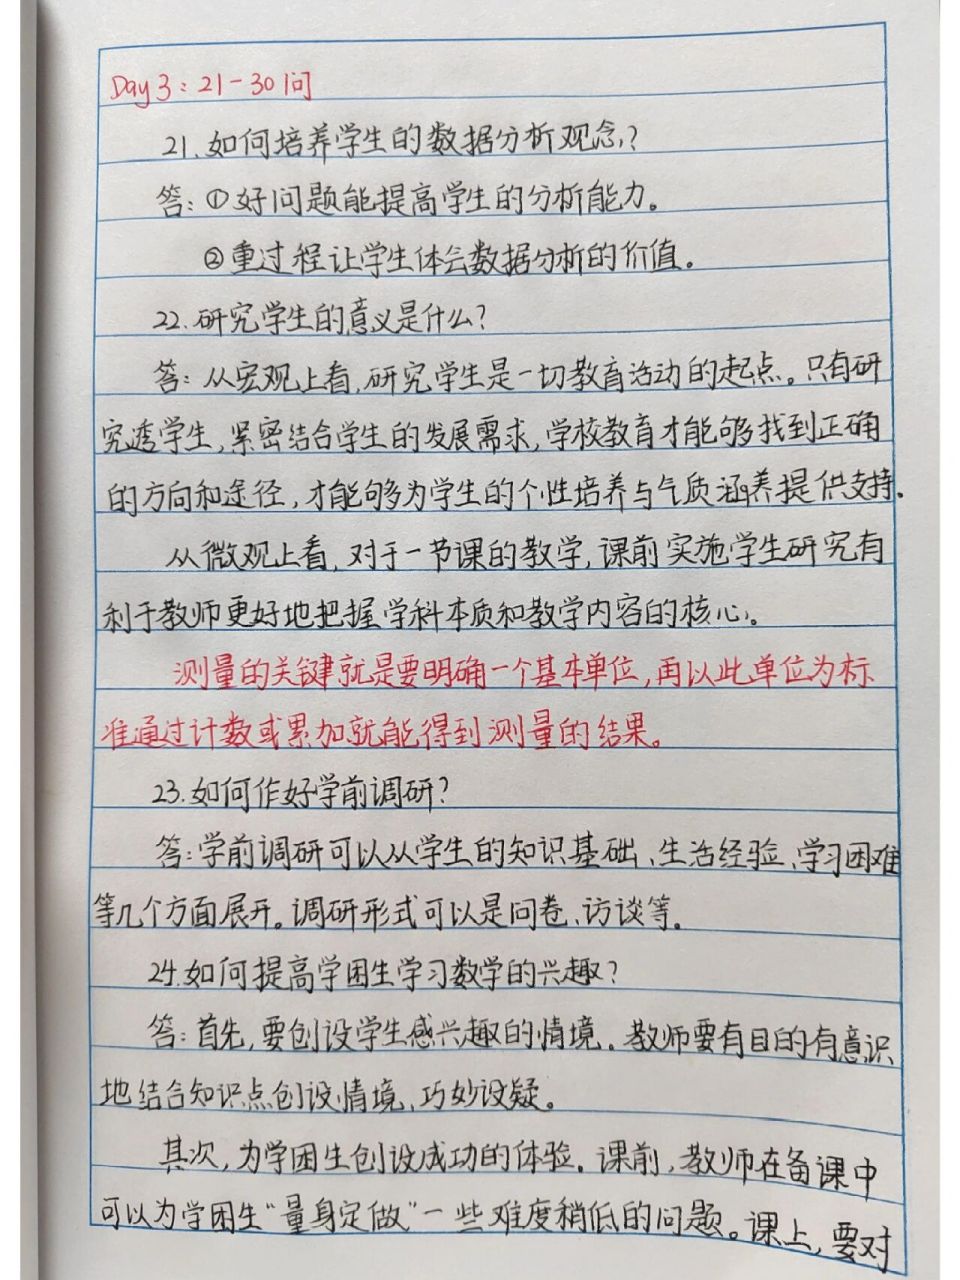 Day 3：21-30问
21.如何培养学生的数据分析观念？
答：①好问题能提高学生的分析能力。
②重过程让学生体会数据分析的价值。
22.研究学生的意义是什么？
答：从宏观上看，研究学生是一切教育活动的起点。只有研
究透学生，紧密结合学生的发展需求，学校教育才能够找到正确
的方向和途径，才能够为学生的个性培养与气质涵养提供支持。
从微观上看，对于一节课的教学，课前实施学生研究有
利于教师更好地把握学科本质和教学内容的核心。
测量的关键就是要明确一个基本单位，再以此单位为标
准通过计数或累加就能得到测量的结果。
23.如何作好学前调研？
答：学前调研可以从学生的知识基础、生活经验、学习困难
等几个方面展开。调研形式可以是问卷、访谈等。
24.如何提高学困生学习数学的兴趣？
答：首先，要创设学生感兴趣的情境。教师要有目的有意识
地结合知识点创设情境，巧妙设疑。
其次，为学困生创设成功的体验。课前，教师在备课中
可以为学困生“量身定做”一些难度稍低的问题。课上，要对